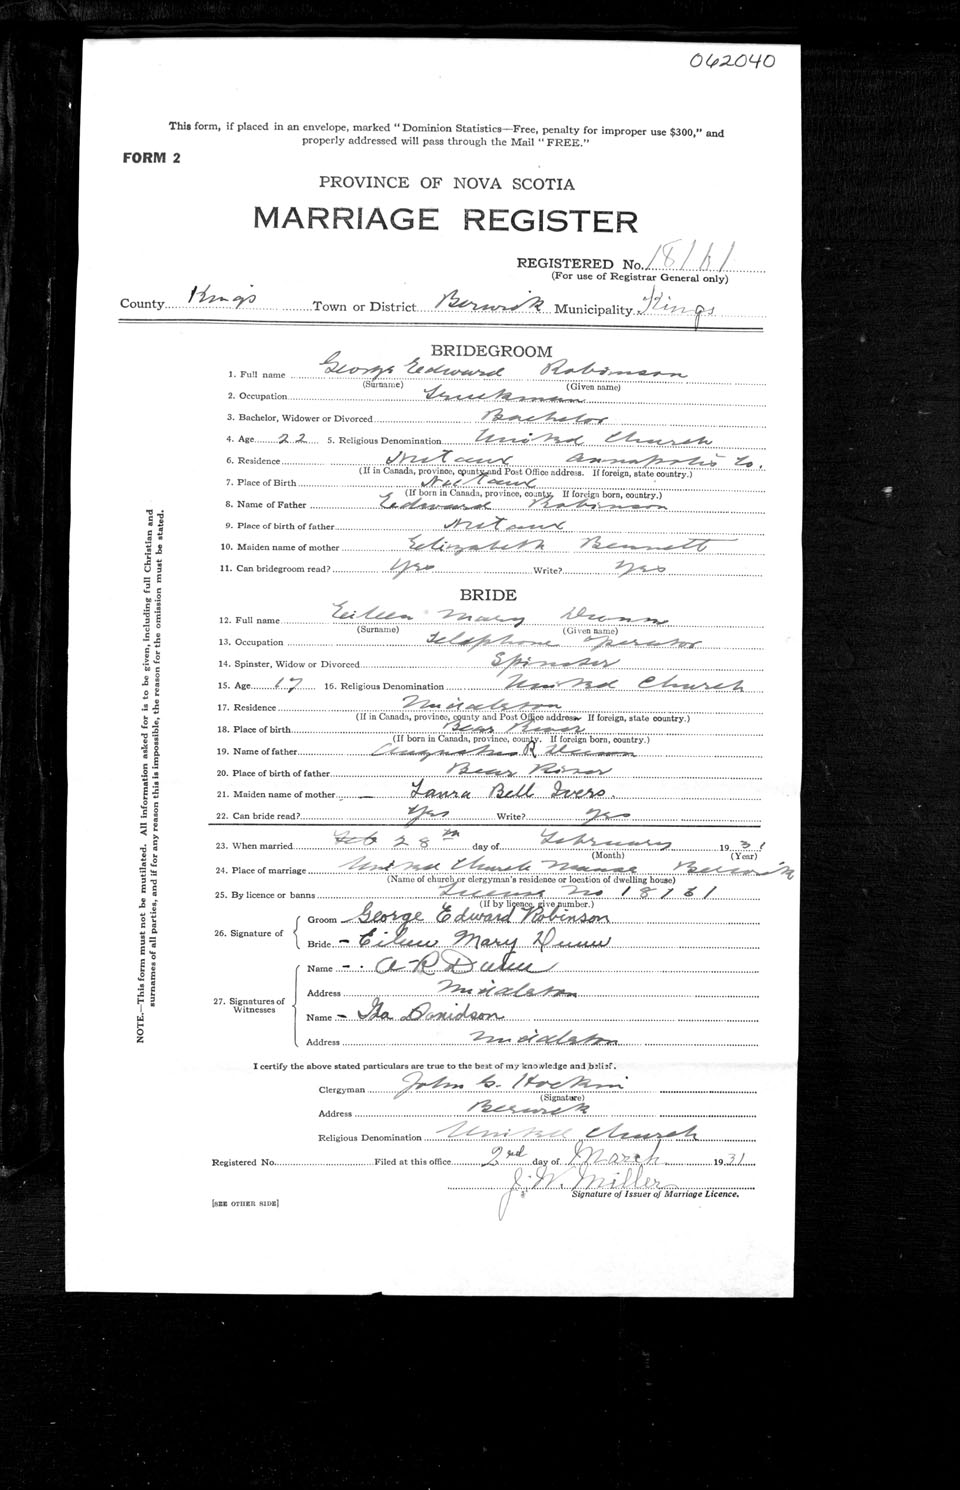 062040
This form, if placed in an envelope, marked "Dominion Statistics—Free, penalty for improper use $300," and
properly addressed will pass through the Mail "FREE."
FORM 2
PROVINCE OF NOVA SCOTIA
MARRIAGE REGISTER
REGISTERED No. 18161
(For use of Registrar General only)
County Kings Town or District Berwick Municipality Kings
BRIDEGROOM
1. Full name George Edward Robinson
(Surname) (Given name)
2. Occupation Truckman
3. Bachelor, Widower or Divorced Bachelor
4. Age 22 5. Religious Denomination United Church
6. Residence Nictaux Annapolis Co.
(If in Canada, province, county and Post Office address. If foreign, state country.)
7. Place of Birth Nictaux
(If born in Canada, province, county. If foreign born, country.)
8. Name of Father Edward Robinson
9. Place of birth of father Nictaux
10. Maiden name of mother Elizabeth Bennett
11. Can bridegroom read? Yes Write? Yes
BRIDE
12. Full name Eileen Mary Dunn
(Surname) (Given name)
13. Occupation Telephone operator
14. Spinster, Widow or Divorced Spinster
15. Age 17 16. Religious Denomination United Church
17. Residence Middleton
(If in Canada, province, county and Post Office address. If foreign, state country.)
18. Place of birth Bear River
(If born in Canada, province, county. If foreign born, country.)
19. Name of father R Dunn
20. Place of birth of father Bear River
21. Maiden name of mother — Laura Bell Ivers.
22. Can bride read? Yes Write? Yes
23. When married Feb 28th day of February 1931
(Month) (Year)
24. Place of marriage United Church Manse Berwick
(Name of church or clergyman's residence or location of dwelling house)
25. By licence or banns License No 18161
(If by licence, give number.)
26. Signature of
Groom — George Edward Robinson
Bride — Eileen Mary Dunn
27. Signatures of Witnesses
Name — A R Dunn
Address Middleton
Name — Davidson
Address Middleton
I certify the above stated particulars are true to the best of my knowledge and belief.
Clergyman John C. Hockin
(Signature)
Address Berwick
Religious Denomination United Church
Registered No. Filed at this office 2nd day of March 1931
J. W. Miller
Signature of Issuer of Marriage Licence.
[SEE OTHER SIDE]
NOTE.—This form must not be mutilated. All information asked for is to be given, including full Christian and
surnames of all parties, and if for any reason this is impossible, the reason for the omission must be stated.